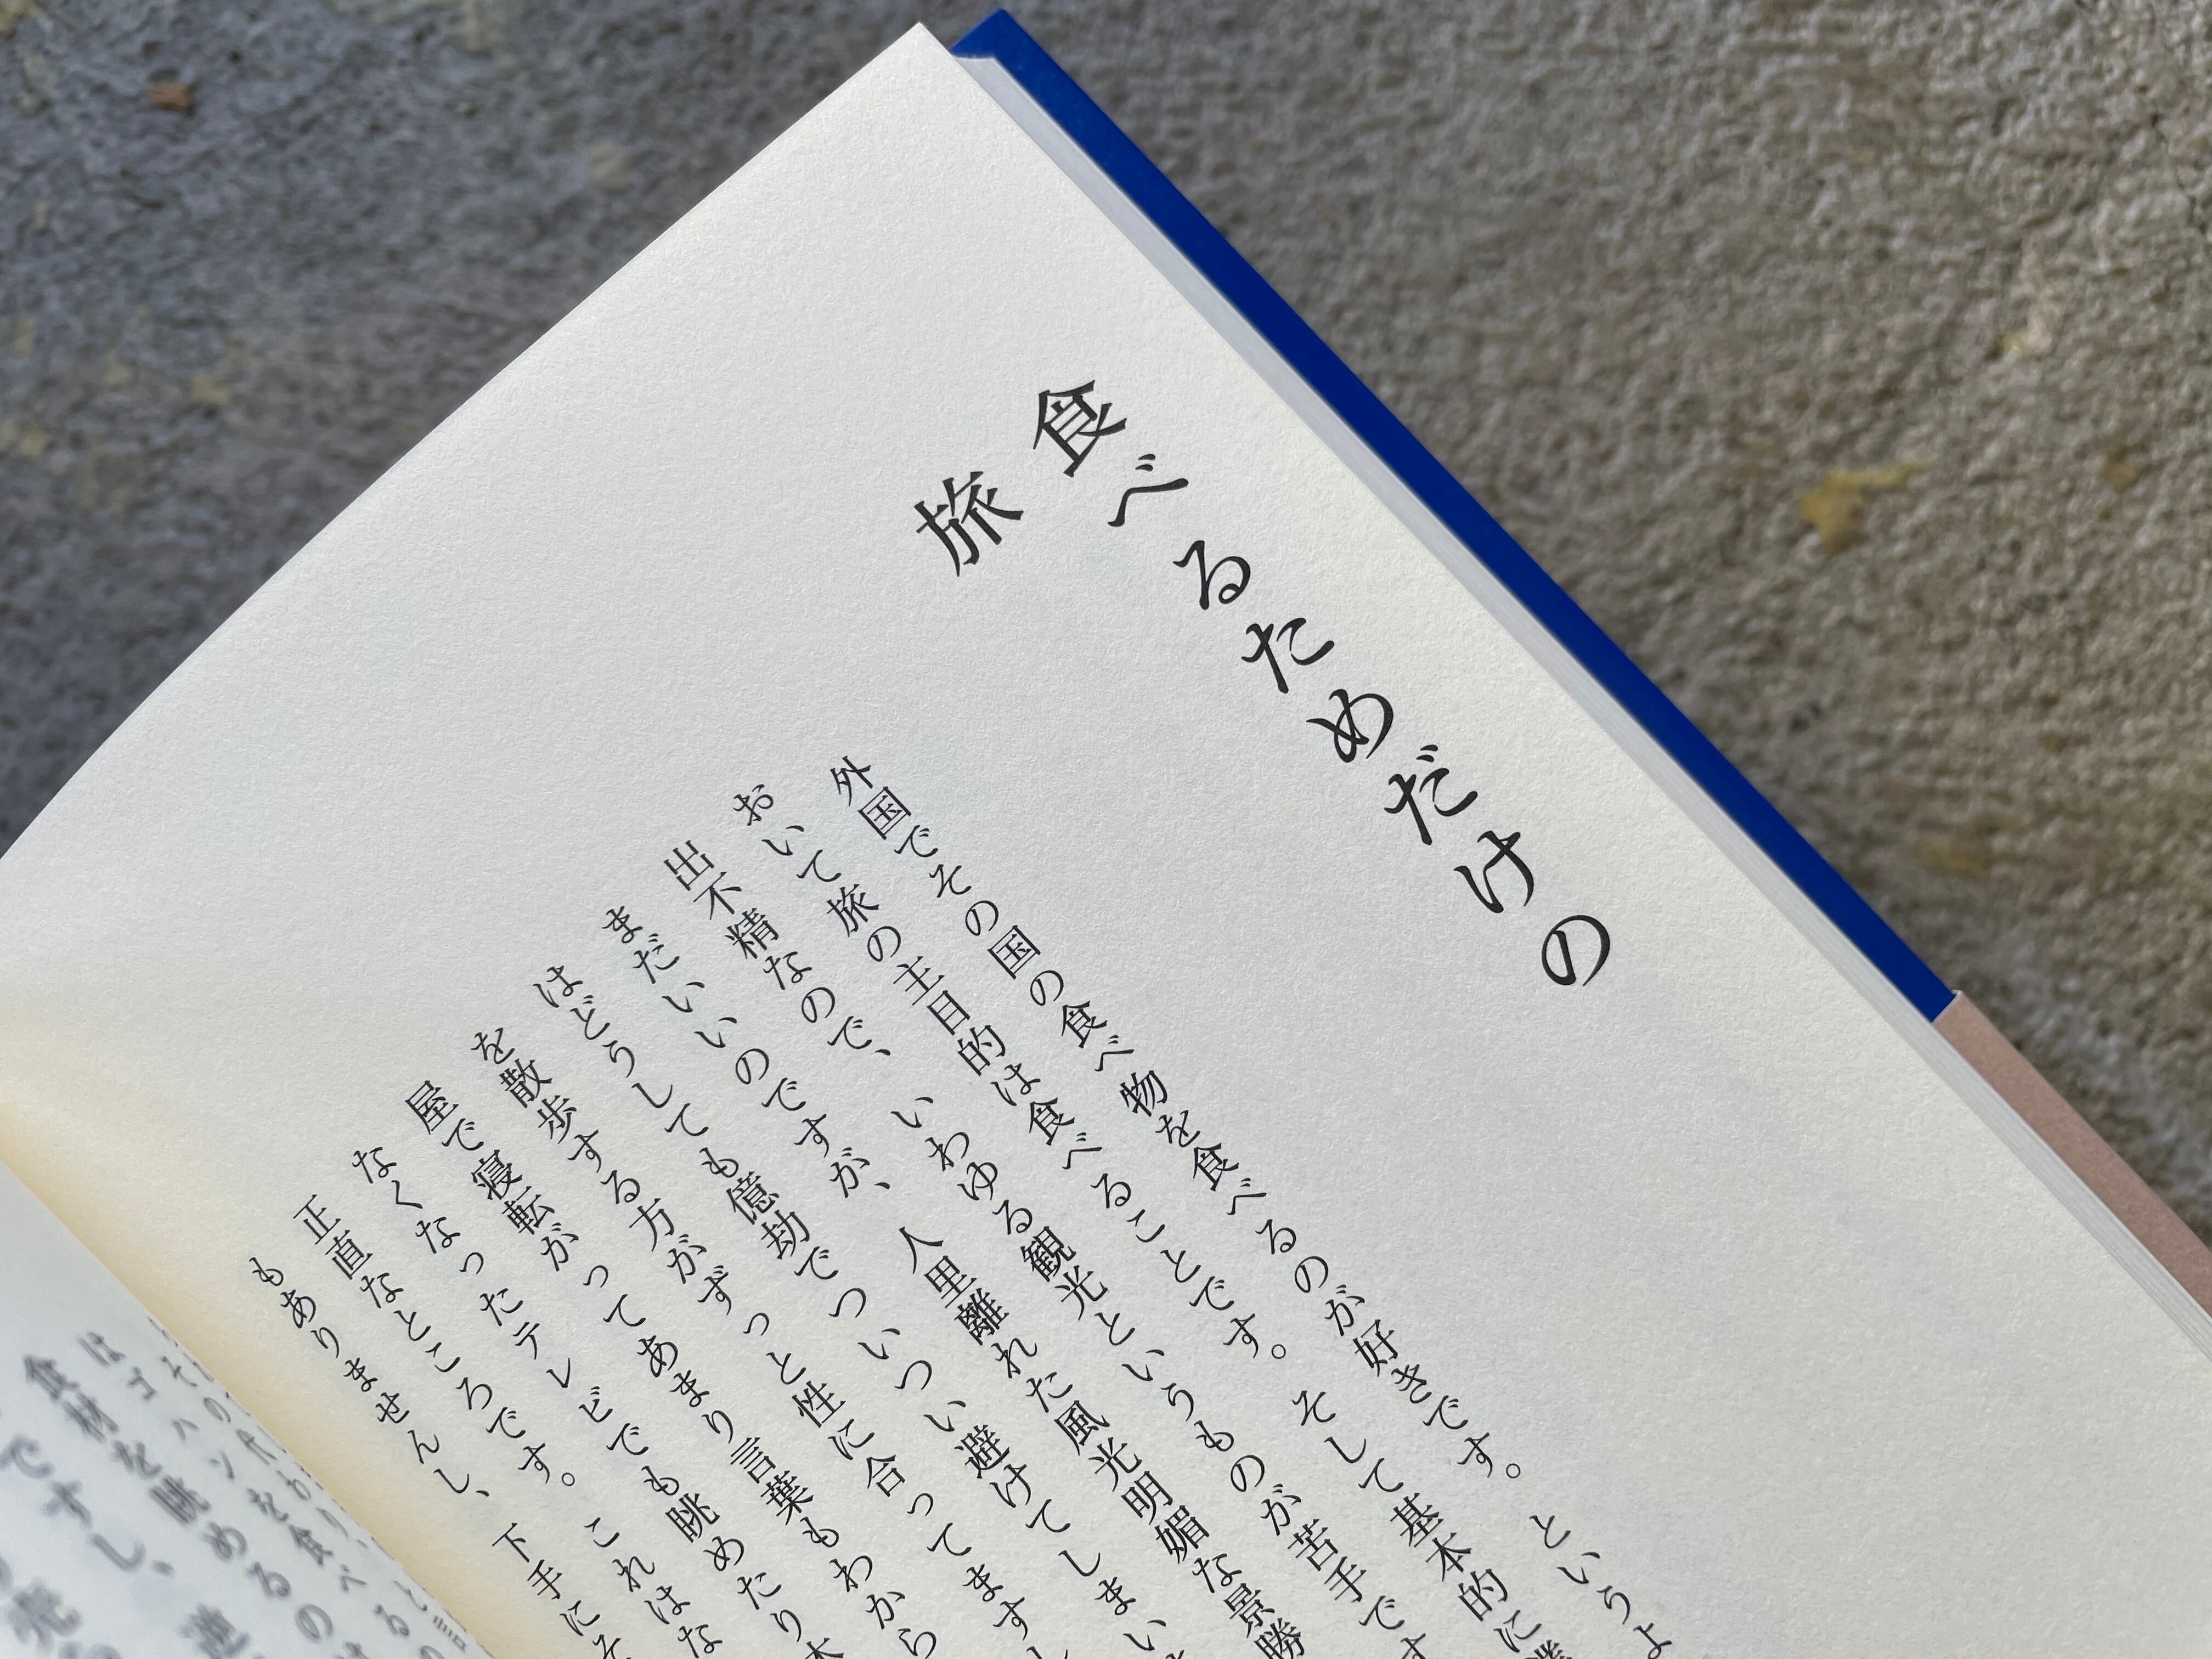 食べるためだけの
旅
外国でその国の食べ物を食べるのが好きです。というよ
おいて旅の主目的は食べることです。そして基本的に
出不精なので、いわゆる観光というものが苦手です
まだいいのですが、人里離れた風光明媚な景勝
はどうしても億劫でついつい避けてしまい
を散歩する方がずっと性に合ってますし
屋で寝転がってあまり言葉もわから
なくなったテレビでも眺めたり本
正直なところです。これはな
もありませんし、下手にそ
はゴハンを食べるの
食材を眺めるの
ですし、逆